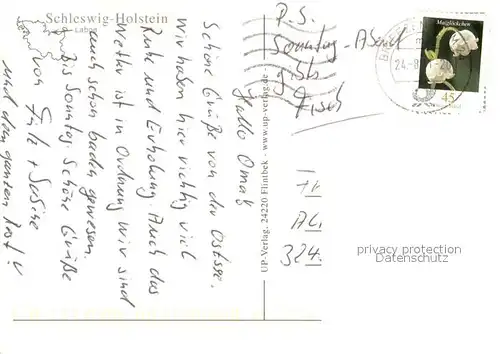 Schleswig-Holstein
Laboe
Hallo Oma!
Schöne Grüße von der Ostsee.
Wir haben hier richtig viel
Ruhe und Erholung. Auch das
Wetter ist in Ordnung. Wir sind
auch schon baden gewesen.
Bis Sonntag. Schöne Grüße
von Fritz + Sabine
und dem ganzen Rest!
UP-Verlag, 24220 Flintbek - www.up-verlag.de
P.S.
Sonntag-Abend
gibts
Fisch
Maiglöckchen
45
24.-8
324
privacy protection
Datenschutz